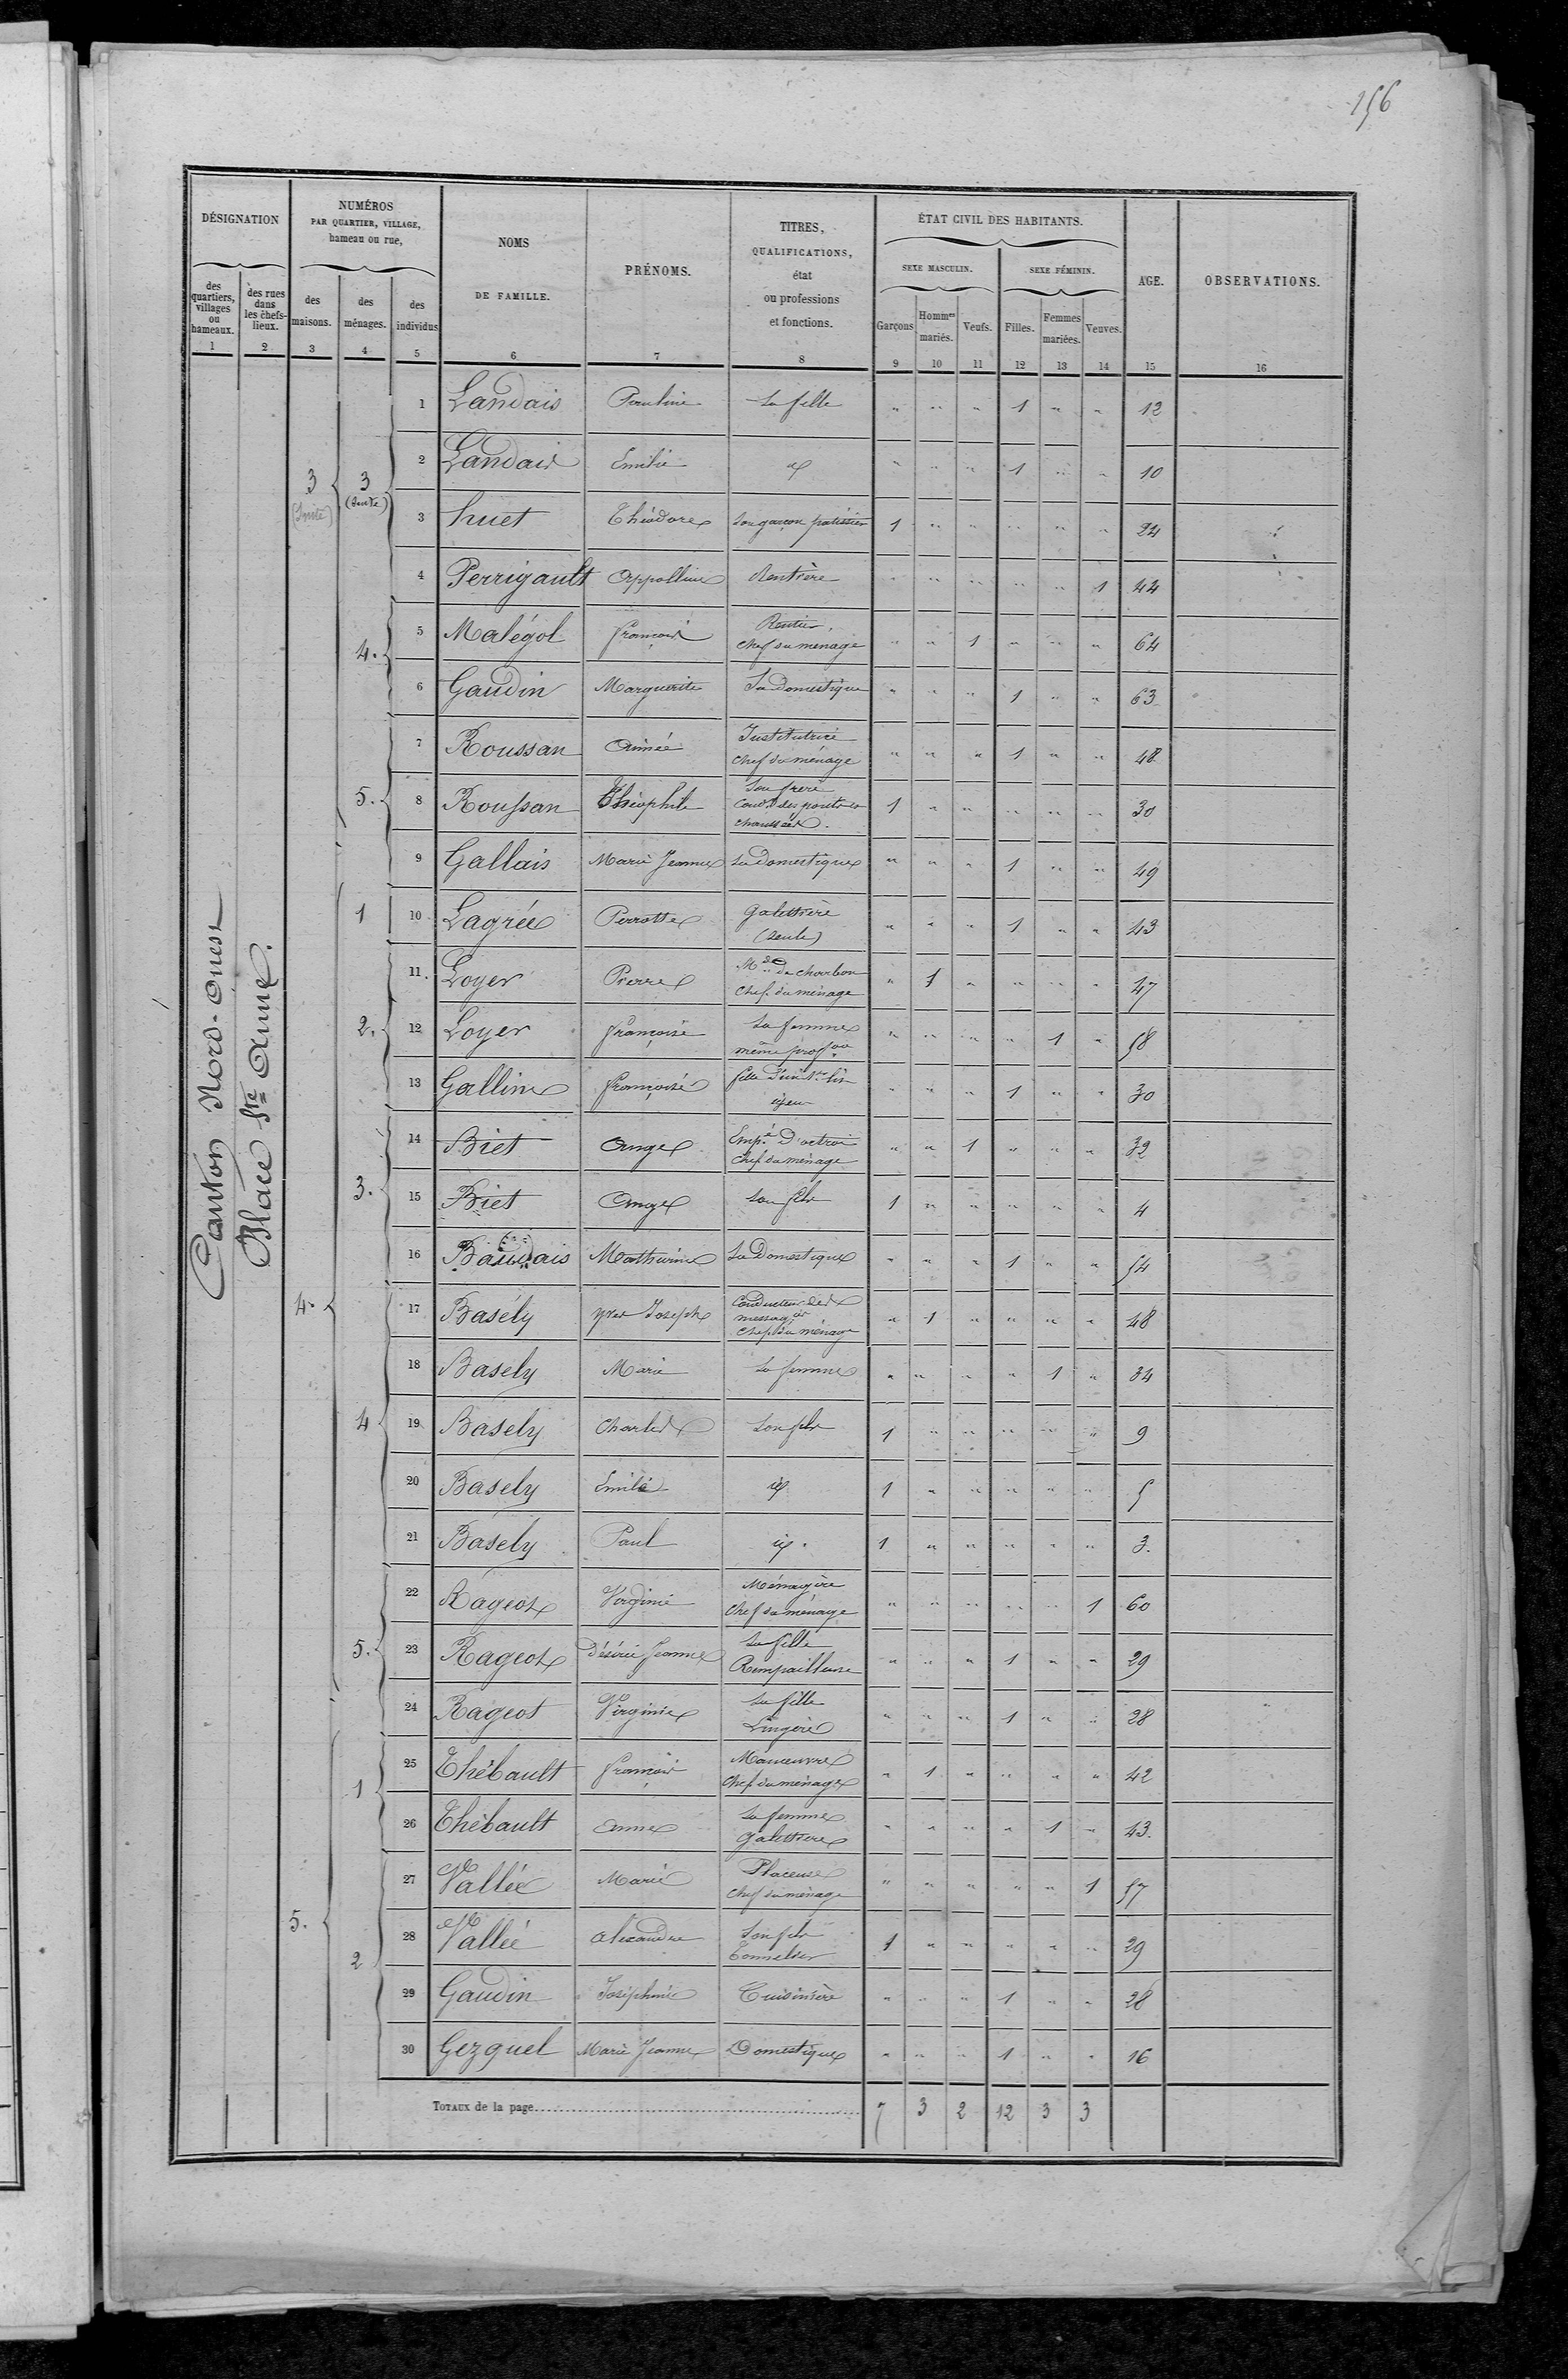 156
DÉSIGNATION
NUMÉROS
PAR QUARTIER, VILLAGE,
hameau ou rue,
NOMS
DE FAMILLE.
PRÉNOMS.
TITRES,
QUALIFICATIONS,
état
ou professions
et fonctions.
ÉTAT CIVIL DES HABITANTS.
SEXE MASCULIN.
SEXE FÉMININ.
AGE.
OBSERVATIONS.
des quartiers, villages ou hameaux.
des rues dans les chefs-lieux.
des maisons.
des ménages.
des individus
Garçons
Hommes mariés.
Veufs.
Filles.
Femmes mariées.
Veuves.
1 2 3 4 5 6 7 8 9 10 11 12 13 14 15 16
Canton Nord-Ouest
Place Ste Anne.
3 (Suite) 3 (Suite)
1 Landais Pauline Sa fille " " " 1 " " 12
2 Landais Emilie id " " " 1 " " 10
3 huet Théodore Son garçon patissier 1 " " " " " 24
4 Perrigault Appolline Rentière " " " " " 1 44
4. 5 Malégol françois Rentier, chef du ménage " " 1 " " " 64
6 Gaudin Marguerite Sa Domestique " " " 1 " " 63
5. 7 Roussan Aimée Institutrice chef du ménage " " " 1 " " 48
8 Roussan Théophile Son frere Condr des ponts et chaussées. 1 " " " " " 30
9 Gallais Marie Jeanne Sa domestique " " " 1 " " 49
4. 1 10 Lagrée Perrotte galettière (seule) " " " 1 " " 43
2. 11. Loyer Pierre Md de charbon chef du ménage " 1 " " " " 47
12 Loyer françoise Sa femme même profon " " " " 1 " 58
13 Galline françoise " " " 1 " " 30
3. 14 Biet Ange Empé d'octroi chef du ménage " " 1 " " " 32
15 Biet Ange Son fils 1 " " " " " 4
16 Mathurine Sa Domestique " " " 1 " " 54
4 17 Basély yves Joseph Conducteur des messagies chef du ménage " 1 " " " " 48
18 Basely Marie Sa femme " " " " 1 " 34
19 Basely Charles Son fils 1 " " " " " 9
20 Basely Emile id 1 " " " " " 5
21 Basely Paul id. 1 " " " " " 3.
5. 22 Rageot Virginie Ménagère chef du ménage " " " " " 1 60
23 Rageot Désirée Jeanne Sa fille Rempailleuse " " " 1 " " 29
24 Rageot Virginie Sa fille Lingère " " " 1 " " 28
5. 1 25 Thébault françois Manœuvre chef du ménage " 1 " " " " 42
26 Thébault Anne Sa femme galettière " " " " 1 " 43.
2 27 Vallée Marie Placeuse chef du ménage " " " " " 1 57
28 Vallée Alexandre Son fils Tonnelier 1 " " " " " 29
29 Gaudin Joséphine Cuisinière " " " 1 " " 28
30 Gezquel Marie Jeanne Domestique " " " 1 " " 16
TOTAUX de la page 7 3 2 12 3 3